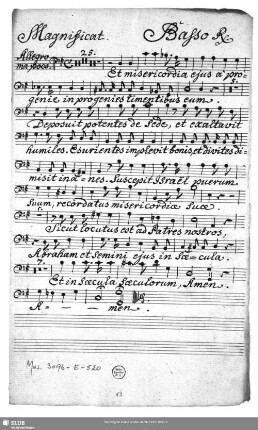 Magnificat. Basso R.
Allegro
ma poco. 25.
Et misericordia ejus a pro-
genie in progenies timentibus eum.
Deposuit potentes de Sede, et exaltavit
humiles. Esurientes implevit bonis, et divites di-
misit inanes. Suscepit Israël puerum
suum, recordatus misericordiæ suæ
Sicut locutus est ad Patres nostros,
Abraham et Semini ejus in Sæcula.
7.
Et in Sæcula Sæculorum, Amen.
A - - - men.
Mus. 3096-E-520
13
SLUB